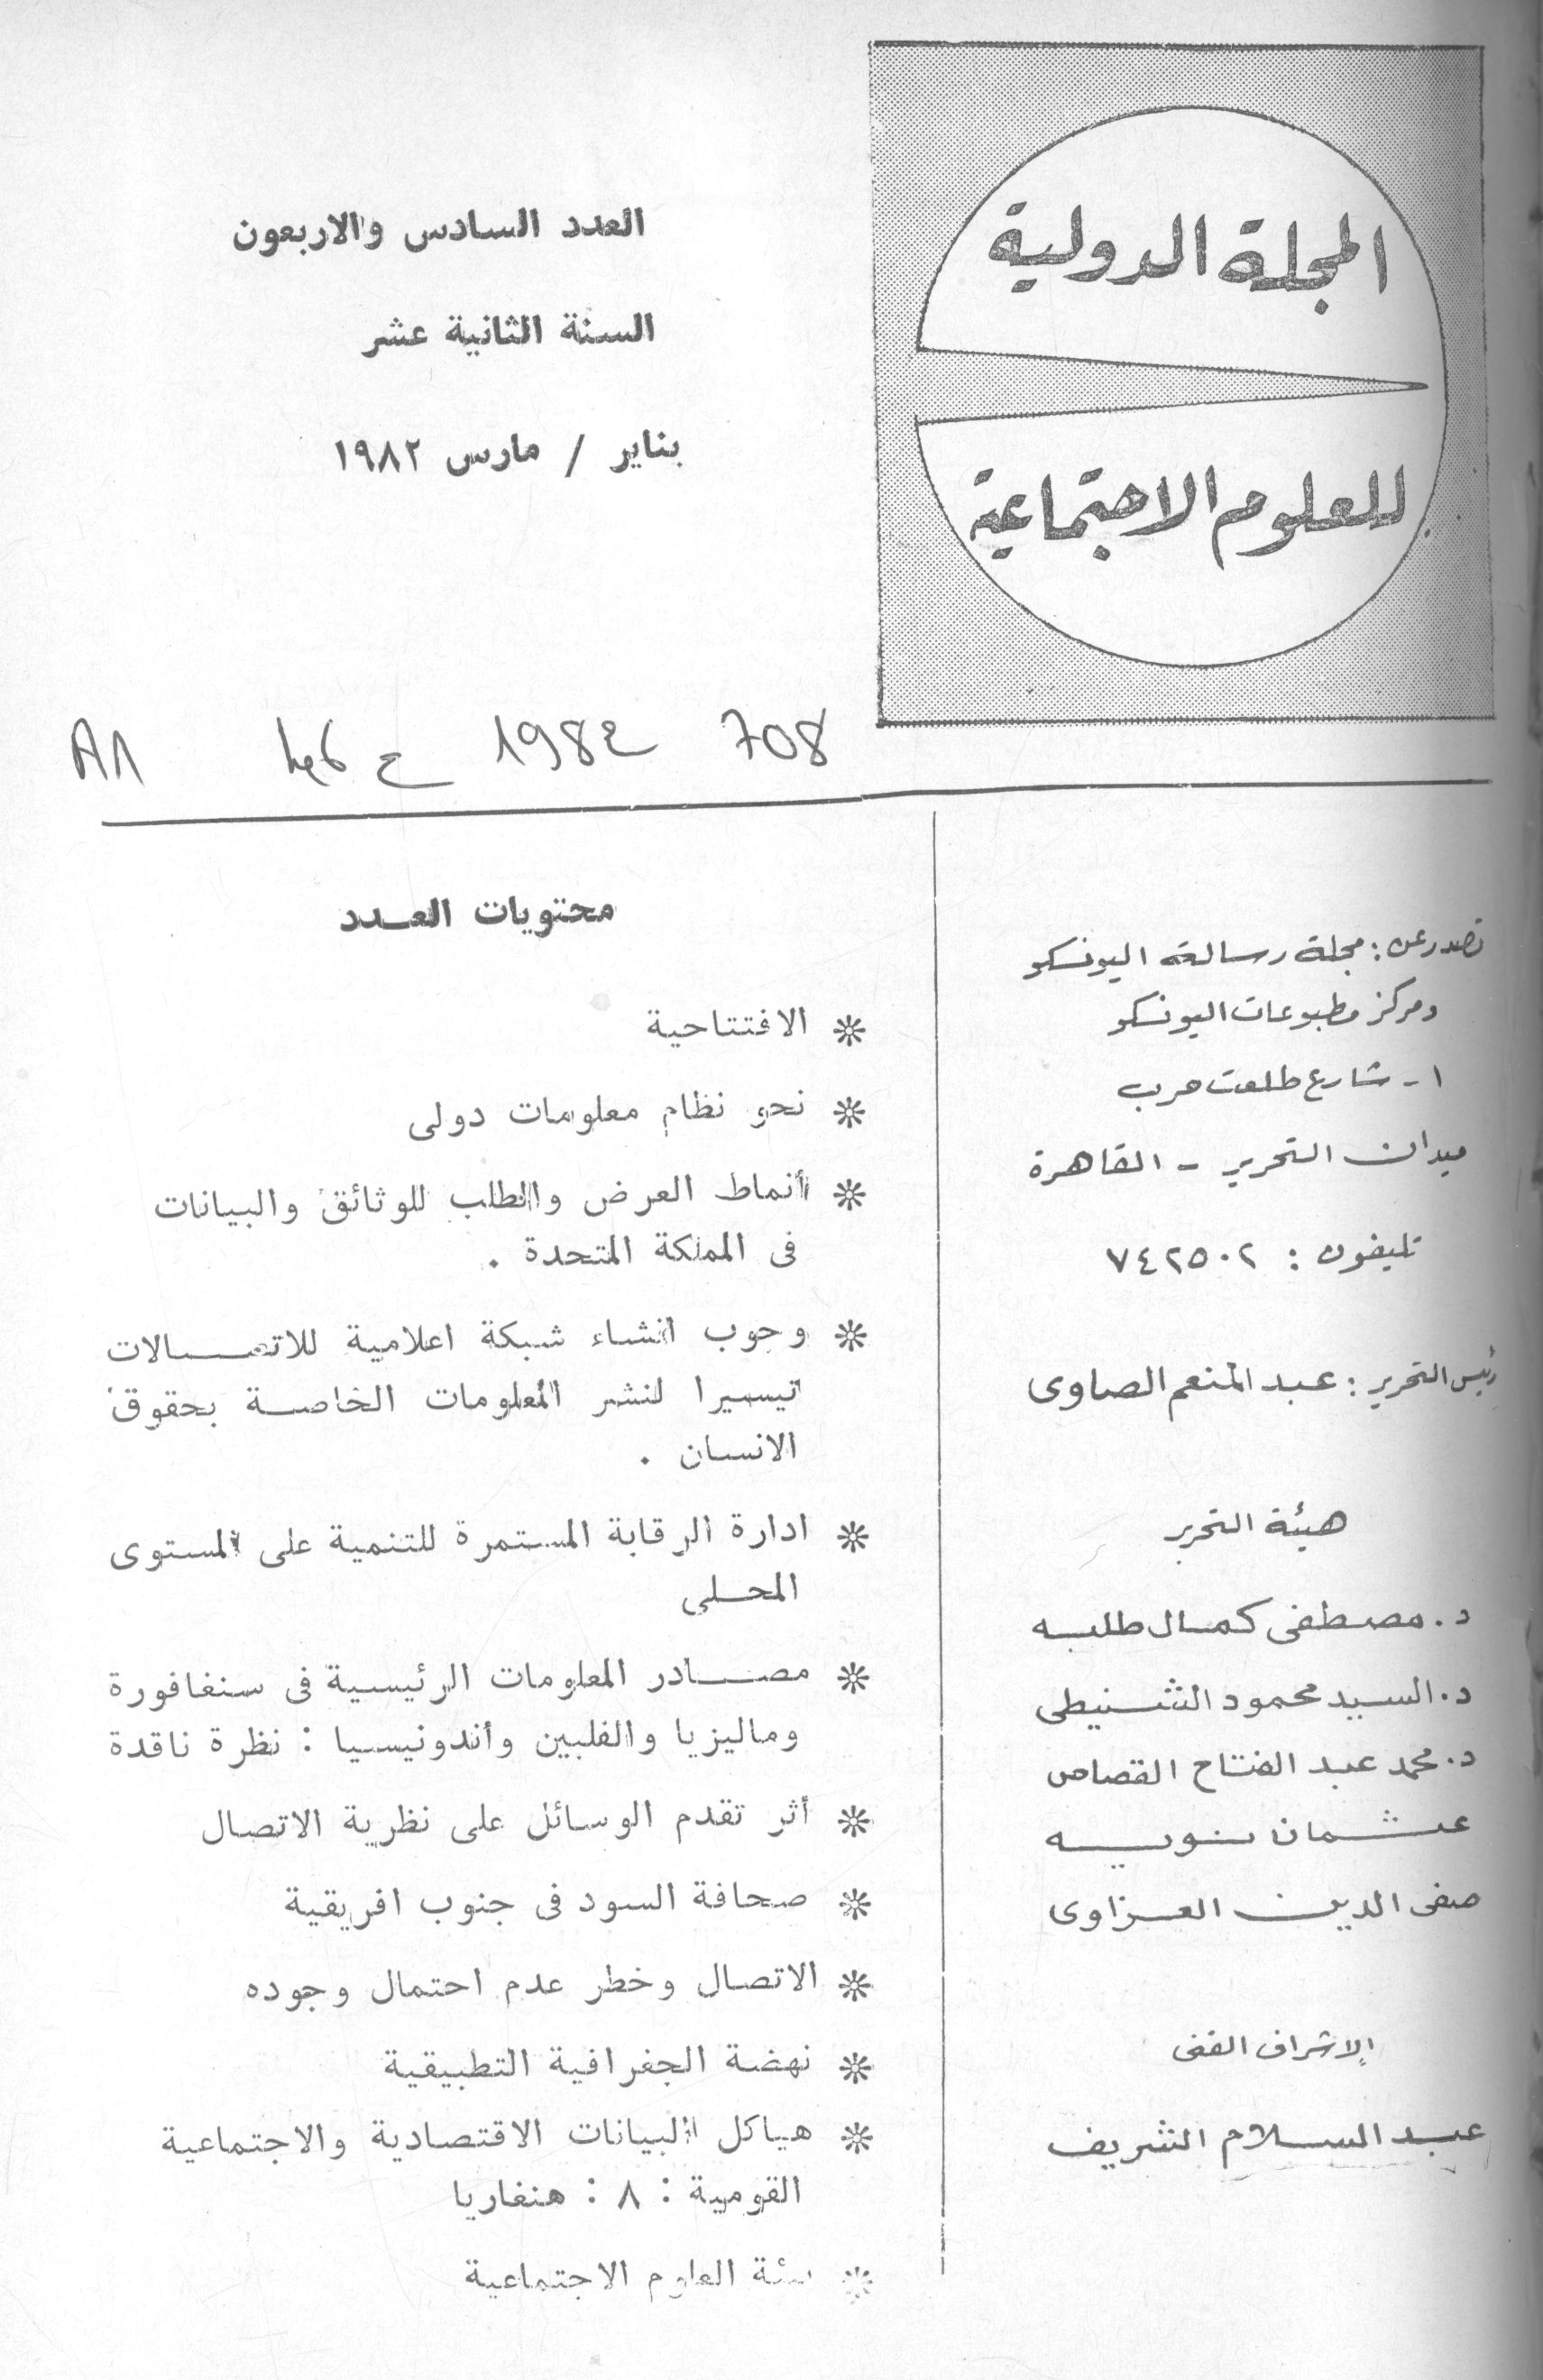 المجلة الدولية
للعلوم الاجتماعية
العدد السادس والاربعون
السنة الثانية عشر
يناير / مارس ١٩٨٢
708
تصدر عن : مجلة رسالة اليونسكو
ومركز مطبوعات اليونسكو
١ - شارع طلعت حرب
ميدان التحرير - القاهرة
تليفون : ٧٤٢٥٠٢
رئيس التحرير : عبد المنعم الصاوى
هيئة التحرير
د . مصطفى كمال طلبه
د . السيد محمود الشنيطى
د . محمد عبد الفتاح القصاص
عثمان نويه
صفى الدين العزاوى
الإشراف الفنى
عبد السلام الشريف
محتويات العدد
الافتتاحية
نحو نظام معلومات دولى
أنماط العرض والطلب للوثائق والبيانات
فى المملكة المتحدة .
وجوب انشاء شبكة اعلامية للاتصالات
تيسيرا لنشر المعلومات الخاصة بحقوق
الانسان .
ادارة الرقابة المستمرة للتنمية على المستوى
المحلى
مصادر المعلومات الرئيسية فى سنغافورة
وماليزيا والفلبين وأندونيسيا : نظرة ناقدة
أثر تقدم الوسائل على نظرية الاتصال
صحافة السود فى جنوب افريقية
الاتصال وخطر عدم احتمال وجوده
نهضة الجغرافية التطبيقية
هياكل البيانات الاقتصادية والاجتماعية
القومية : ٨ : هنغاريا
بيئة العلوم الاجتماعية